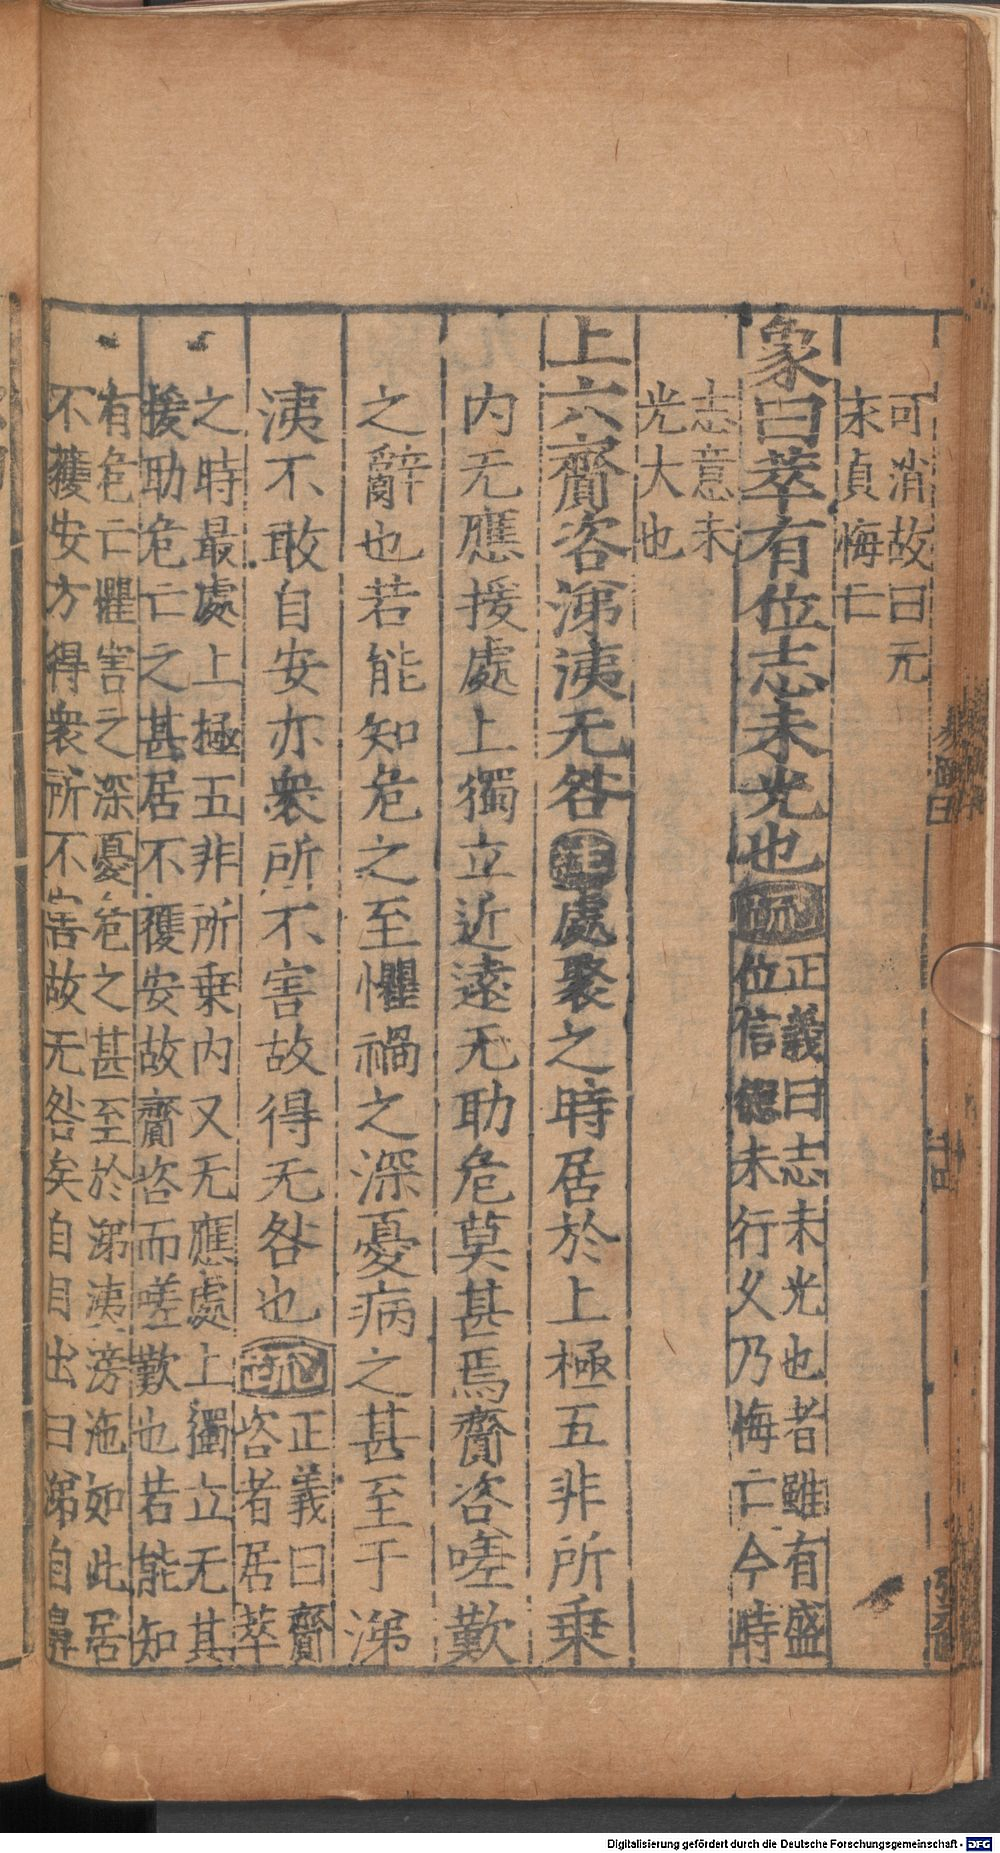 可消故曰元
末貞悔亡
象曰萃有位志未光也疏正義曰志未光也者雖有盛
位信德未行久乃悔亡今時
志意未
光大也
上六齎咨涕洟无咎注處聚之時居於上極五非所乗
内无應援處上獨立近遠无助危莫甚焉齎咨嗟歎
之辭也若能知危之至懼禍之深憂病之甚至于涕
洟不敢自安亦衆所不害故得无咎也疏正義曰齎
咨者居萃
之時最處上極五非所乗内又无應處上獨立无其
援助危亡之甚居不獲安故齎咨而嗟歎也若能知
有危亡懼害之深憂危之甚至於涕洟滂沲如此居
不獲安方得衆所不害故无咎矣自目出曰涕自鼻
Digitalisierung gefördert durch die Deutsche Forschungsgemeinschaft - DFG